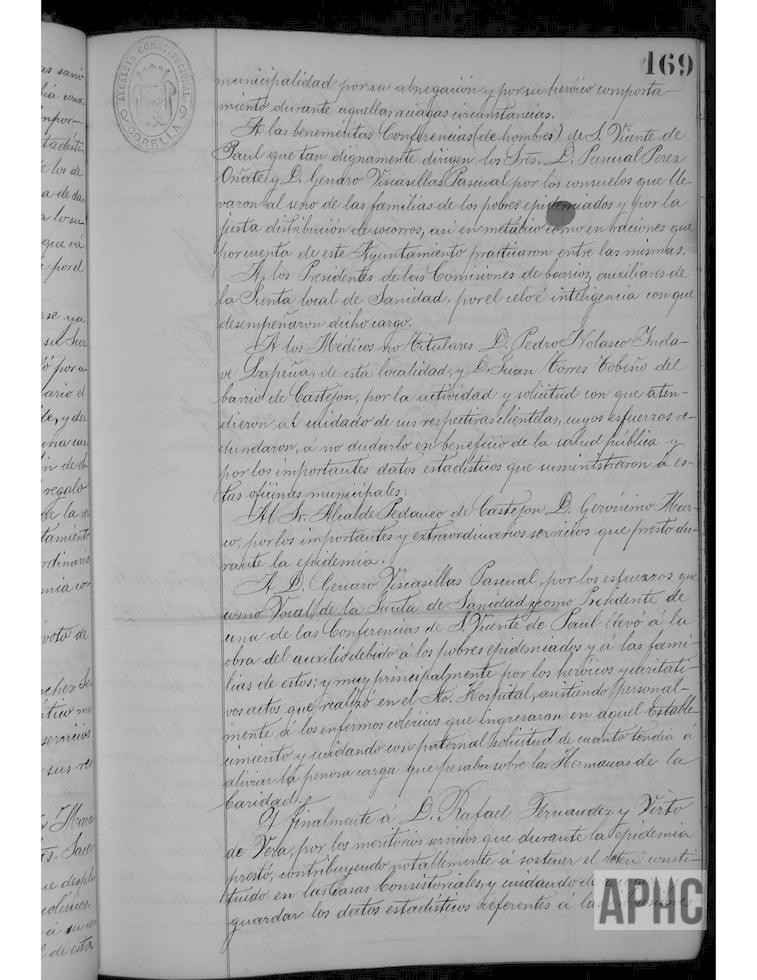 169
ALCALDIA CONSTITUCIONAL
CORELLA
municipalidad por su abnegación y por su heróico comporta-
miento durante aquellas aciagas circunstancias.
A las beneméritas Conferencias (de hombres) de S. Vicente de
Paul que tan dignamente dirigen los Srs. D. Pascual Perez
Oñate y D. Genaro Viscasillas Pascual por los consuelos que lle-
varon al seno de las familias de los pobres epidemiados y por la
justa distribución de socorros, asi en metálico como en raciones que
por cuenta de este Ayuntamiento practicaron entre las mismas.
A los Presidentes de las Comisiones de barrios, auxiliares de
la Junta local de Sanidad, por el celo é inteligencia con que
desempeñaron dicho cargo.
A los Médicos no titulares D. Pedro Nolasco Inda-
ve Lapeña, de esta localidad, y D. Juan Torres Tobeño del
barrio de Castejon, por la actividad y solicitud con que aten-
dieron al cuidado de sus respectivas clientelas, cuyos esfuerzos re-
dundaron, á no dudarlo en beneficio de la salud pública y
por los importantes datos estadísticos que suministraron á es-
tas oficinas municipales.
Al Sr. Alcalde Pedaneo de Castejon D. Gerónimo Mar-
co, por los importantes y extraordinarios servicios que prestó du-
rante la epidemia.
A D. Genaro Viscasillas Pascual, por los esfuerzos que
como Vocal de la Junta de Sanidad y como Presidente de
una de las Conferencias de S. Vicente de Paul llevó á la
obra del auxilio debido á los pobres epidemiados y á las fami-
lias de estos; y muy principalmente por los heróicos y caritati-
vos actos que realizó en el Sto. Hospital, asistiendo personal-
mente á los enfermos coléricos que ingresaron en aquel Estable-
cimiento y cuidando con paternal solicitud de cuanto tendia á
aliviar la penosa carga que pesaba sobre las Hermanas de la
Caridad.
Y finalmente á D. Rafael Fernandez y Virto
de Vera, por los meritorios servicios que durante la epidemia
prestó, contribuyendo notablemente á sostener el reten consti-
tuido en las Casas Consistoriales, y cuidando de
guardar los datos estadísticos referentes á las
APHC